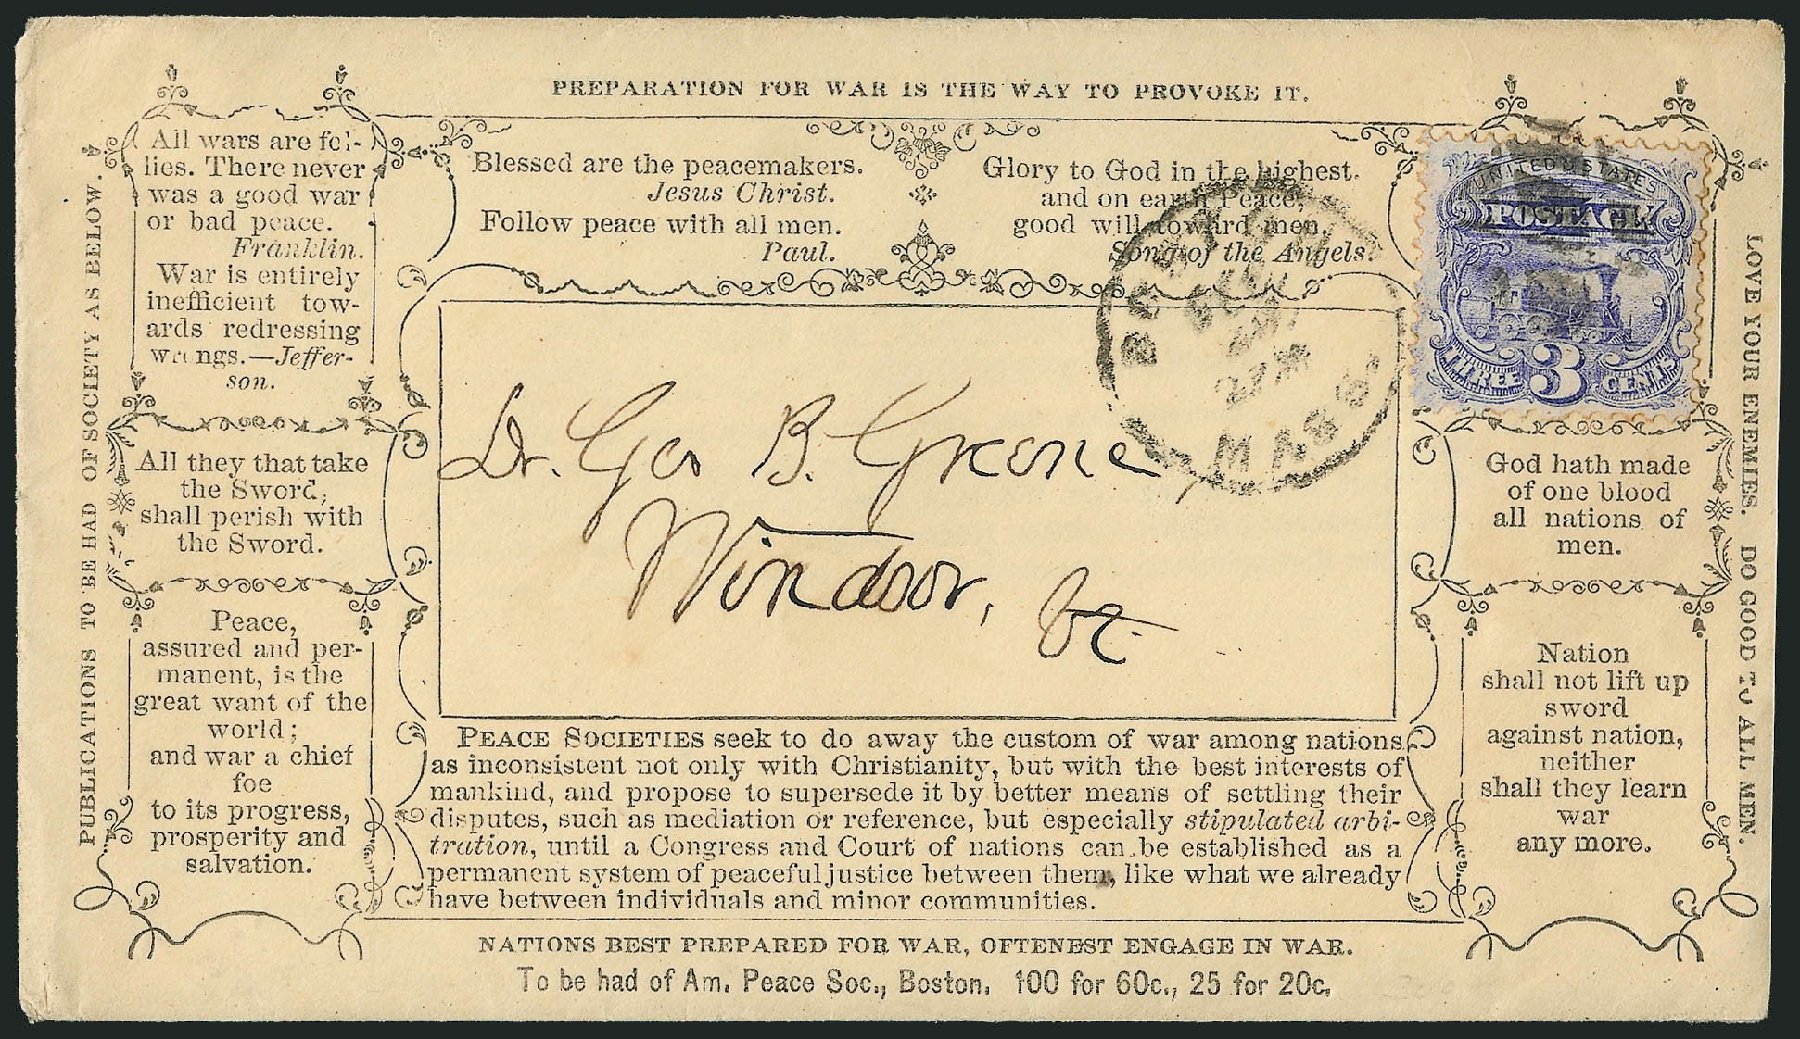 PREPARATION FOR WAR IS THE WAY TO PROVOKE IT.
PUBLICATIONS TO BE HAD OF SOCIETY AS BELOW.
All wars are fol-
lies. There never
was a good war
or bad peace.
Franklin.
War is entirely
inefficient tow-
ards redressing
wrongs.—Jeffer-
son.
All they that take
the Sword,
shall perish with
the Sword.
Peace,
assured and per-
manent, is the
great want of the
world;
and war a chief
foe
to its progress,
prosperity and
salvation.
Blessed are the peacemakers.
Jesus Christ.
Follow peace with all men.
Paul.
Glory to God in the highest.
and on earth Peace,
good will toward men.
Song of the Angels.
UNITED STATES
POSTAGE
THREE 3 CENTS
BOSTON
MASS.
Dr. Geo B. Greene,
Windsor, Vt.
PEACE SOCIETIES seek to do away the custom of war among nations
as inconsistent not only with Christianity, but with the best interests of
mankind, and propose to supersede it by better means of settling their
disputes, such as mediation or reference, but especially stipulated arbi-
tration, until a Congress and Court of nations can be established as a
permanent system of peaceful justice between them, like what we already
have between individuals and minor communities.
God hath made
of one blood
all nations of
men.
Nation
shall not lift up
sword
against nation,
neither
shall they learn
war
any more.
LOVE YOUR ENEMIES. DO GOOD TO ALL MEN.
NATIONS BEST PREPARED FOR WAR, OFTENEST ENGAGE IN WAR.
To be had of Am. Peace Soc., Boston. 100 for 60c., 25 for 20c.